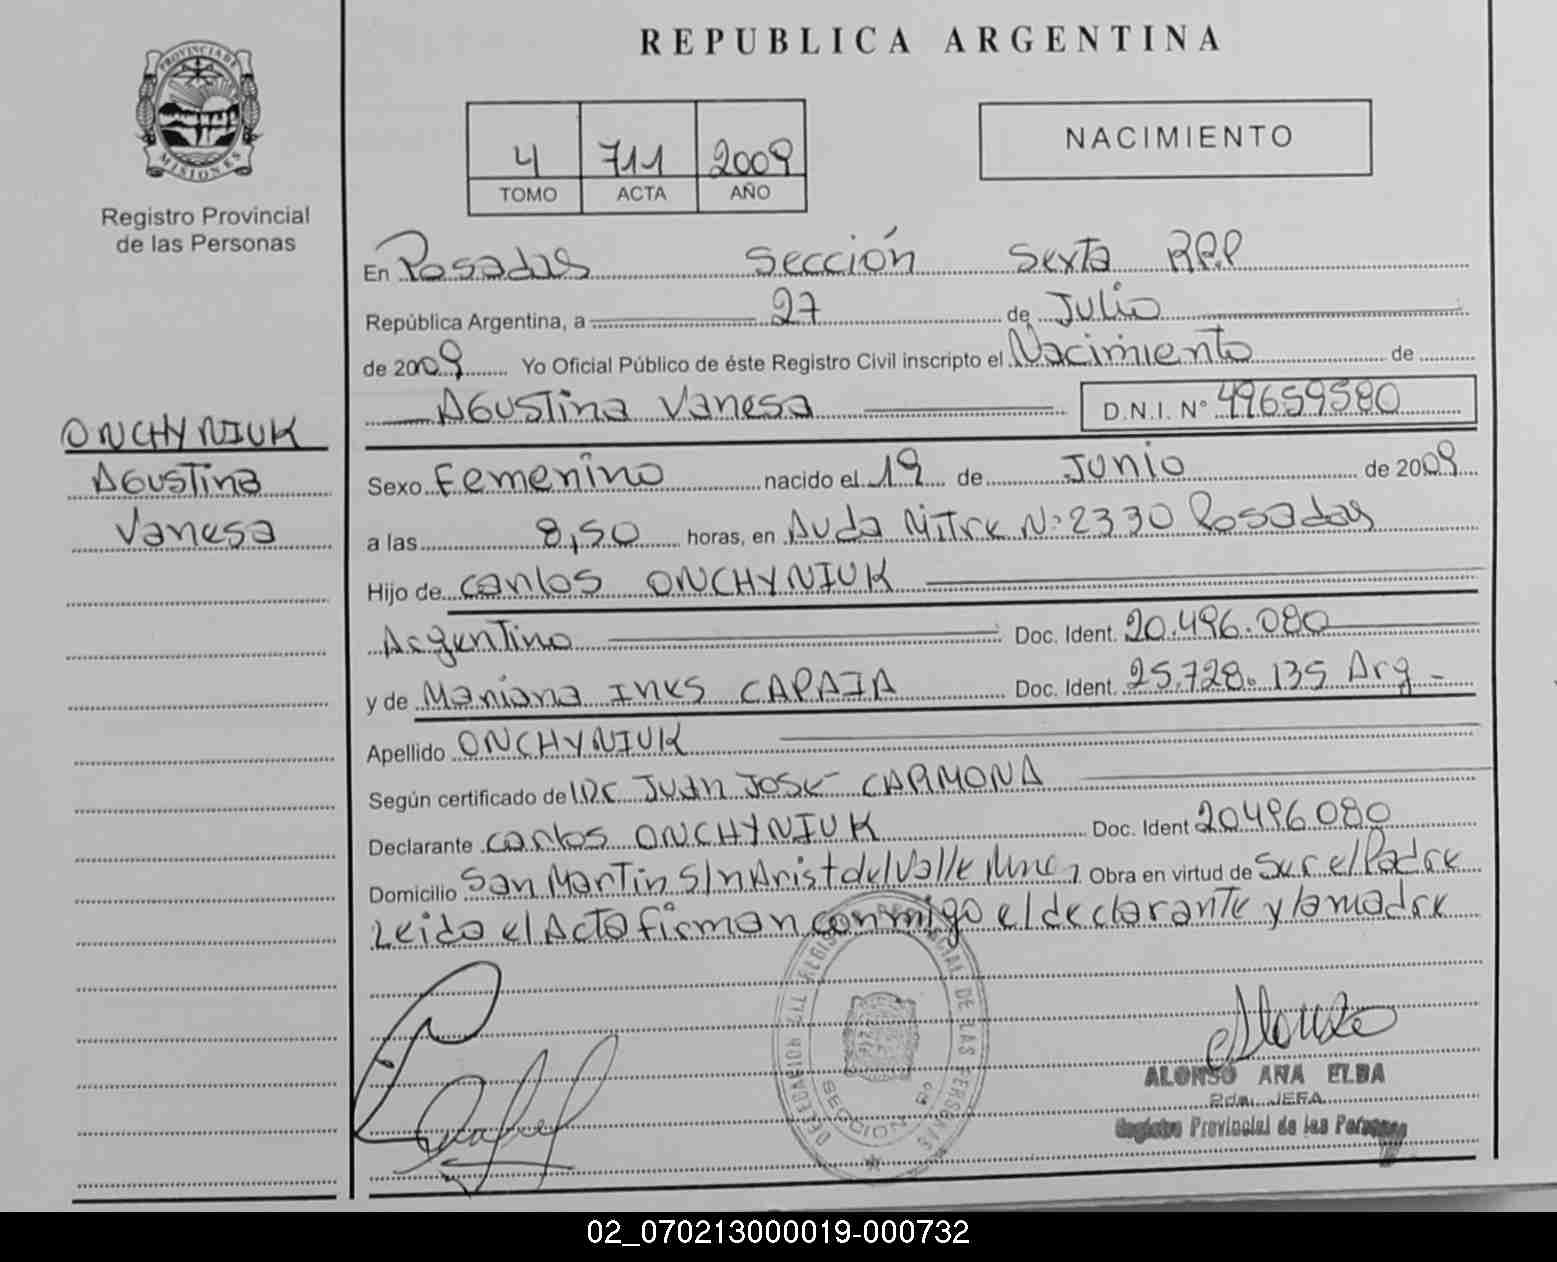 REPUBLICA ARGENTINA
PROVINCIA DE
MISIONES
Registro Provincial
de las Personas
4 711 2009
TOMO ACTA AÑO
NACIMIENTO
En Posadas Sección Sexta R.P.P
República Argentina, a 27 de Julio
de 2009 Yo Oficial Público de éste Registro Civil inscripto el Nacimiento de
Agustina Vanesa D.N.I. Nº 49659580
ONCHYNIUK
Agustina
Vanesa
Sexo Femenino nacido el 19 de Junio de 2009
a las 8,50 horas, en Avda Mitre Nº 2330 Posadas
Hijo de Carlos ONCHYNIUK
Argentino Doc. Ident. 20.496.080
y de Mariana Ines CAPAIA Doc. Ident. 25.728.135 Arg
Apellido ONCHYNIUK
Según certificado del Dr Juan José CARMONA
Declarante Carlos ONCHYNIUK Doc. Ident 20496080
Domicilio San Martin S/n Arist del Valle Mnes Obra en virtud de Ser el Padre
Leido el Acta firman conmigo el declarante y la madre
SECCION
DE LAS PERSONAS
ALONSO ANA ELBA
2da. JEFA
Registro Provincial de las Personas
02_070213000019-000732